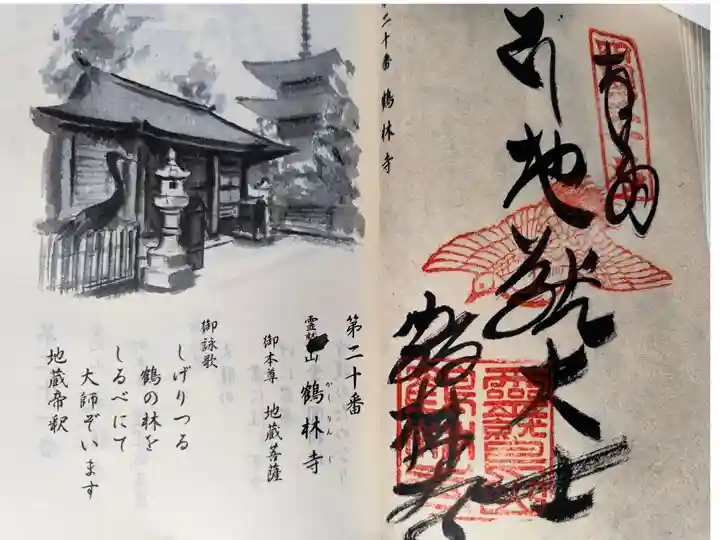 第二十番
霊鷲山 鶴林寺
かくりんじ
御本尊 地蔵菩薩
御詠歌
しげりつる
鶴の林を
しるべにて
大師ぞいます
地蔵帝釈
第二十番 鶴林寺
奉納
地蔵大士
鶴林寺